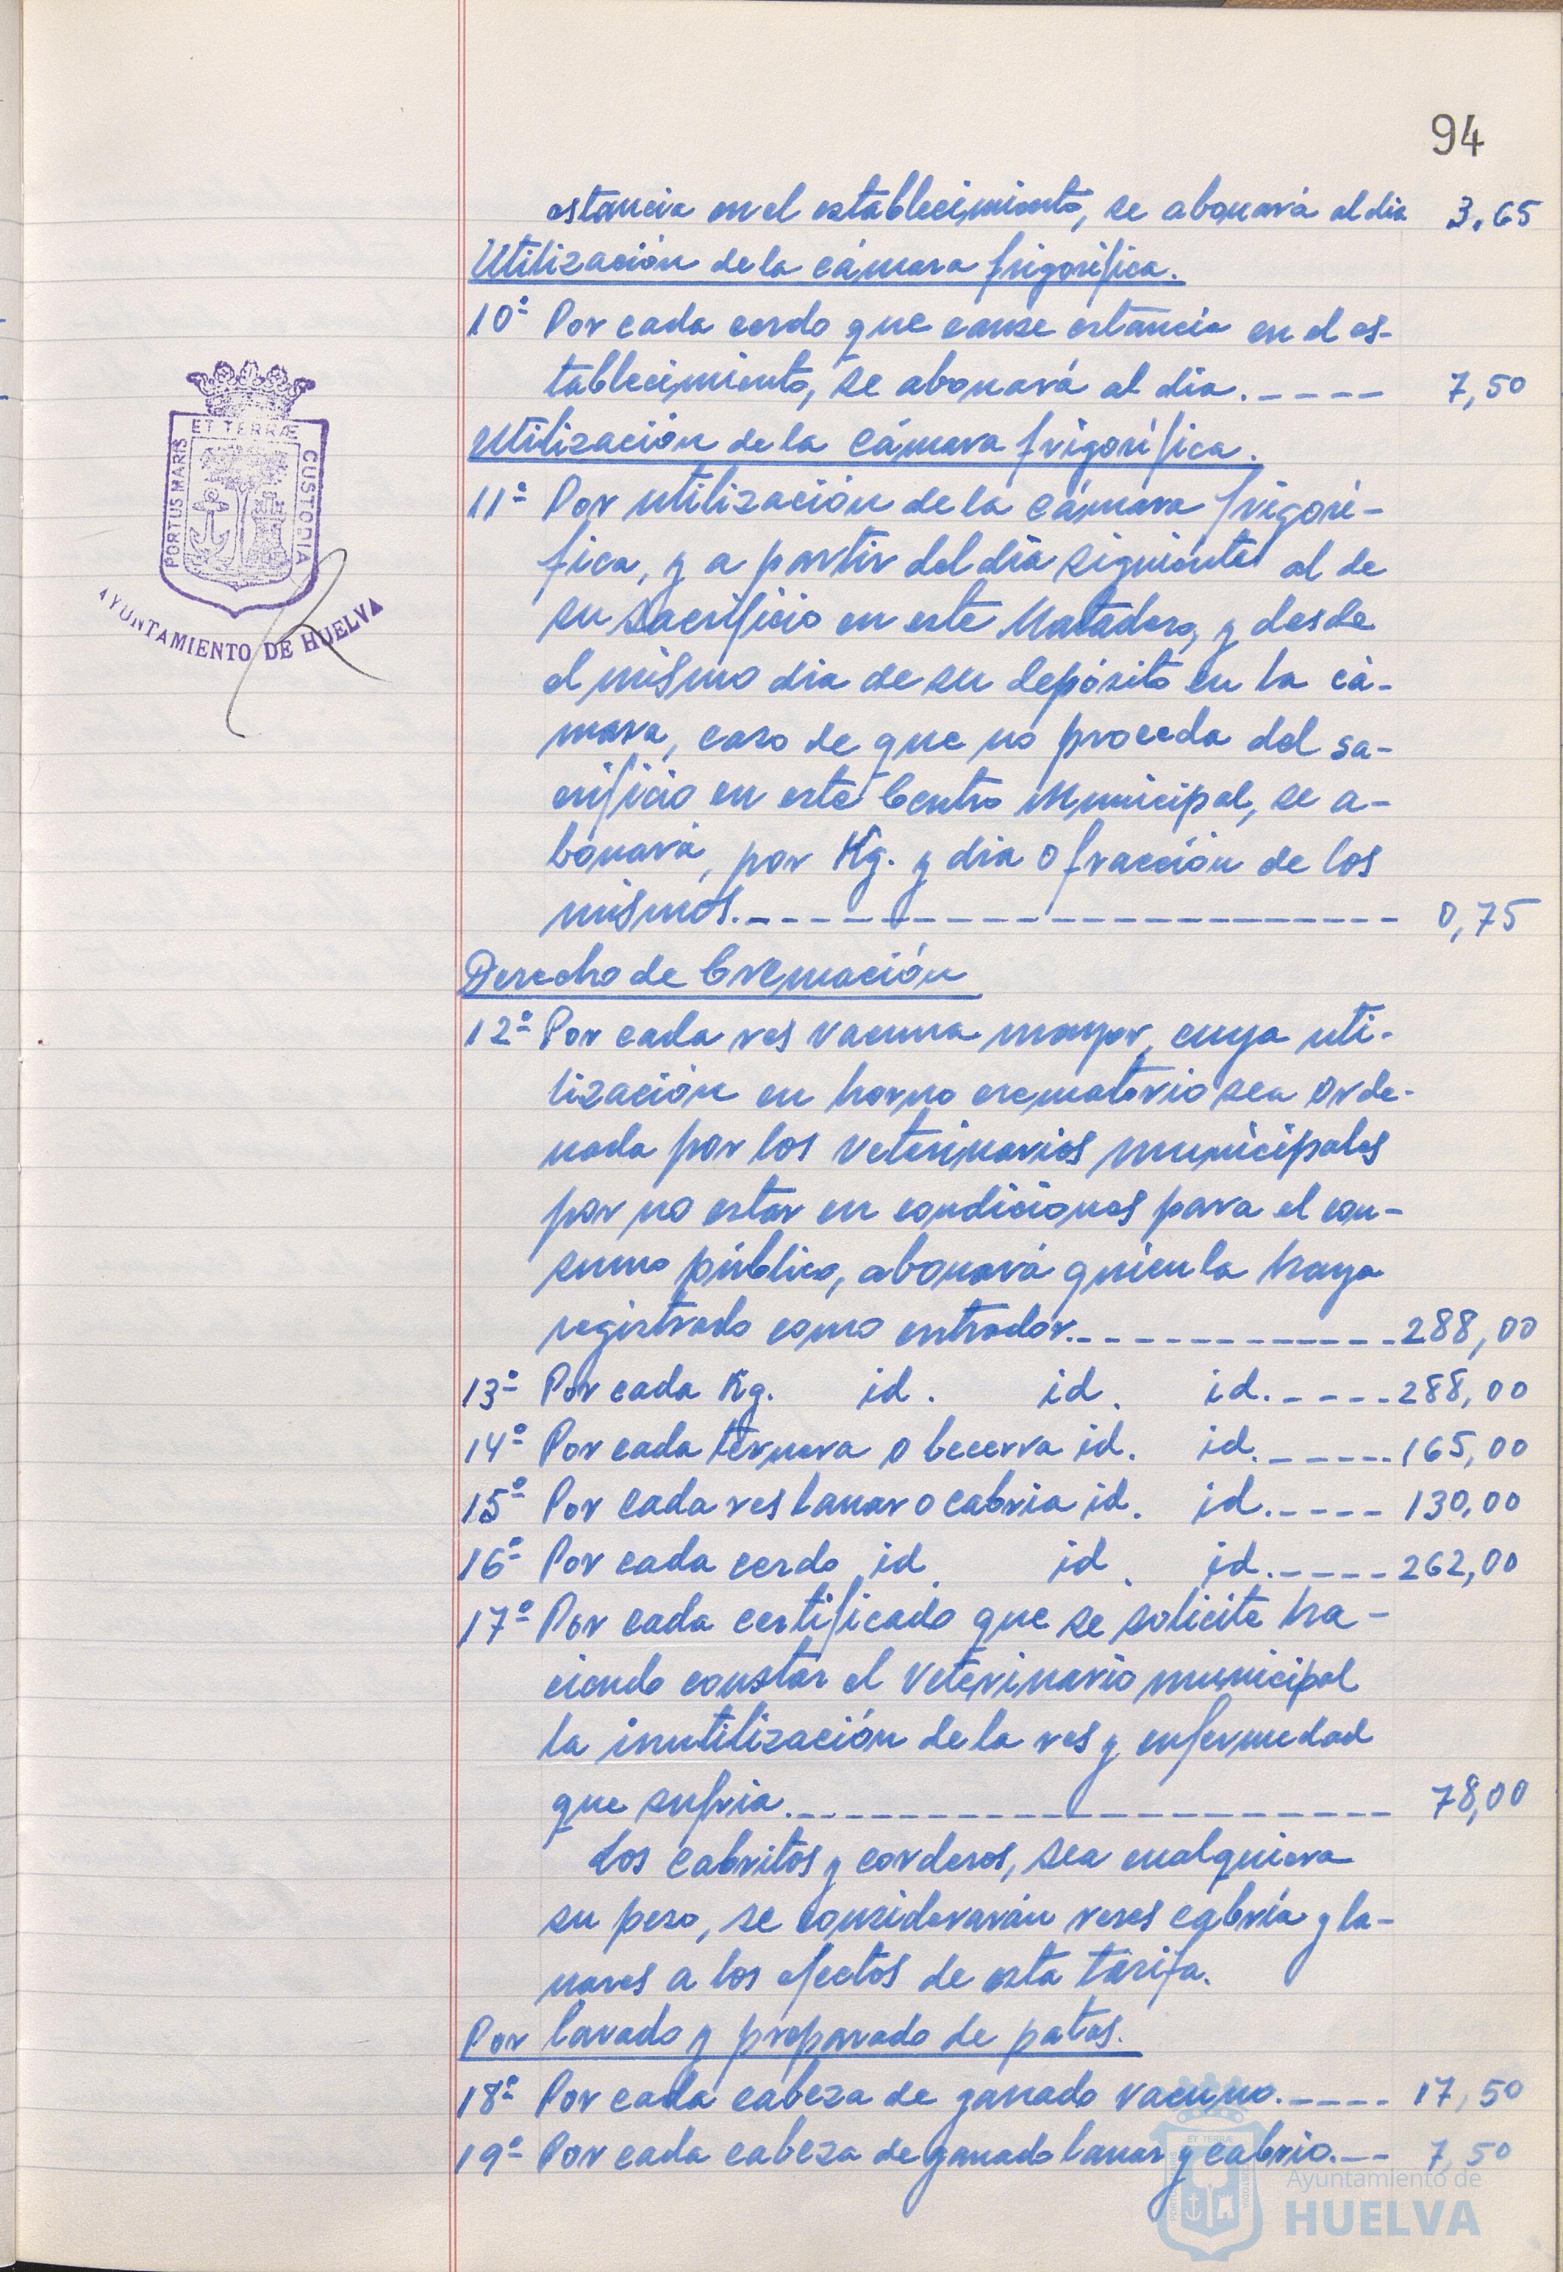 94
estancia en el establecimiento, se abonará al día 3,65
Utilización de la cámara frigorífica.
10º Por cada cerdo que cause estancia en el es-
tablecimiento, se abonará al día.----- 7,50
Utilización de la cámara frigorífica.
11º Por utilización de la cámara frigorí-
fica, y a partir del día siguiente al de
su sacrificio en este Matadero, y desde
el mismo día de su depósito en la cá-
mara, caso de que no proceda del sa-
crificio en este Centro Municipal, se a-
bonará, por Kg. y día o fracción de los
mismos.----- 0,75
Derecho de Cremación
12º Por cada res vacuna mayor, cuya uti-
lización en horno crematorio sea orde-
nada por los Veterinarios municipales
por no estar en condiciones para el con-
sumo público, abonará quien la haya
registrado como entrador.----- 288,00
13º Por cada Kg. id. id. id.----- 288,00
14º Por cada ternera o becerra id. id.----- 165,00
15º Por cada res lanar o cabría id. id.----- 130,00
16º Por cada cerdo id. id. id.----- 262,00
17º Por cada certificado que se solicite ha-
ciendo constar el Veterinario municipal
la inutilización de la res y enfermedad
que sufría.----- 78,00
Los cabritos y corderos, sea cualquiera
su peso, se considerarán reses cabría y la-
nares a los efectos de esta tarifa.
Por lavado y preparado de patas.
18º Por cada cabeza de ganado vacuno.----- 17,50
19º Por cada cabeza de ganado lanar y cabrío.--- 7,50
PORTUS MARIS ET TERRÆ CUSTODIA
AYUNTAMIENTO DE HUELVA
Ayuntamiento de
HUELVA